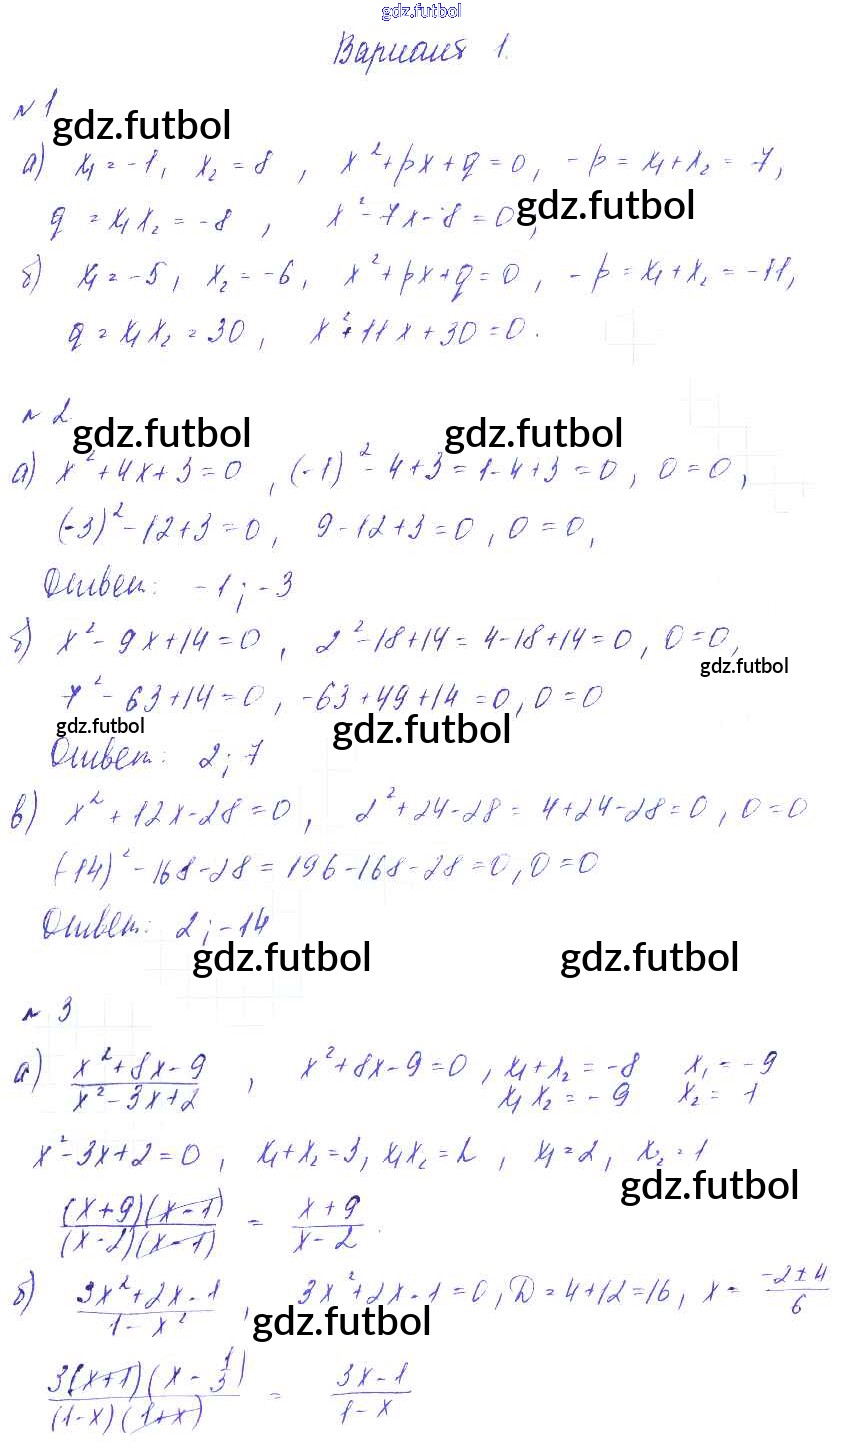 gdz.futbol
Вариант 1.
№ 1
gdz.futbol
а) x₁ = -1, x₂ = 8 , x² + px + q = 0, -p = x₁ + x₂ = 7,
q = x₁x₂ = -8 , x² - 7x - 8 = 0,
gdz.futbol
б) x₁ = -5, x₂ = -6, x² + px + q = 0 , -p = x₁ + x₂ = -11,
q = x₁x₂ = 30 , x² + 11x + 30 = 0.
№ 2
gdz.futbol gdz.futbol
а) x² + 4x + 3 = 0 , (-1)² - 4 + 3 = 1 - 4 + 3 = 0, 0 = 0,
(-3)² - 12 + 3 = 0, 9 - 12 + 3 = 0, 0 = 0,
Ответ: -1; -3
б) x² - 9x + 14 = 0 , 2² - 18 + 14 = 4 - 18 + 14 = 0, 0 = 0,
gdz.futbol
7² - 63 + 14 = 0, -63 + 49 + 14 = 0, 0 = 0
gdz.futbol gdz.futbol
Ответ: 2; 7
в) x² + 12x - 28 = 0 , 2² + 24 - 28 = 4 + 24 - 28 = 0, 0 = 0
(-14)² - 168 - 28 = 196 - 168 - 28 = 0, 0 = 0
Ответ: 2; -14
gdz.futbol gdz.futbol
№ 3
а) (x² + 8x - 9)/(x² - 3x + 2) , x² + 8x - 9 = 0, x₁ + x₂ = -8 x₁ = -9
x₁x₂ = -9 x₂ = 1
x² - 3x + 2 = 0 , x₁ + x₂ = 3, x₁x₂ = 2 , x₁ = 2, x₂ = 1
gdz.futbol
((x + 9)(x - 1))/((x - 2)(x - 1)) = (x + 9)/(x - 2).
б) (3x² + 2x - 1)/(1 - x²) , 3x² + 2x - 1 = 0, D = 4 + 12 = 16, x = (-2 ± 4)/6
gdz.futbol
(3(x + 1)(x - 1/3))/((1 - x)(1 + x)) = (3x - 1)/(1 - x)